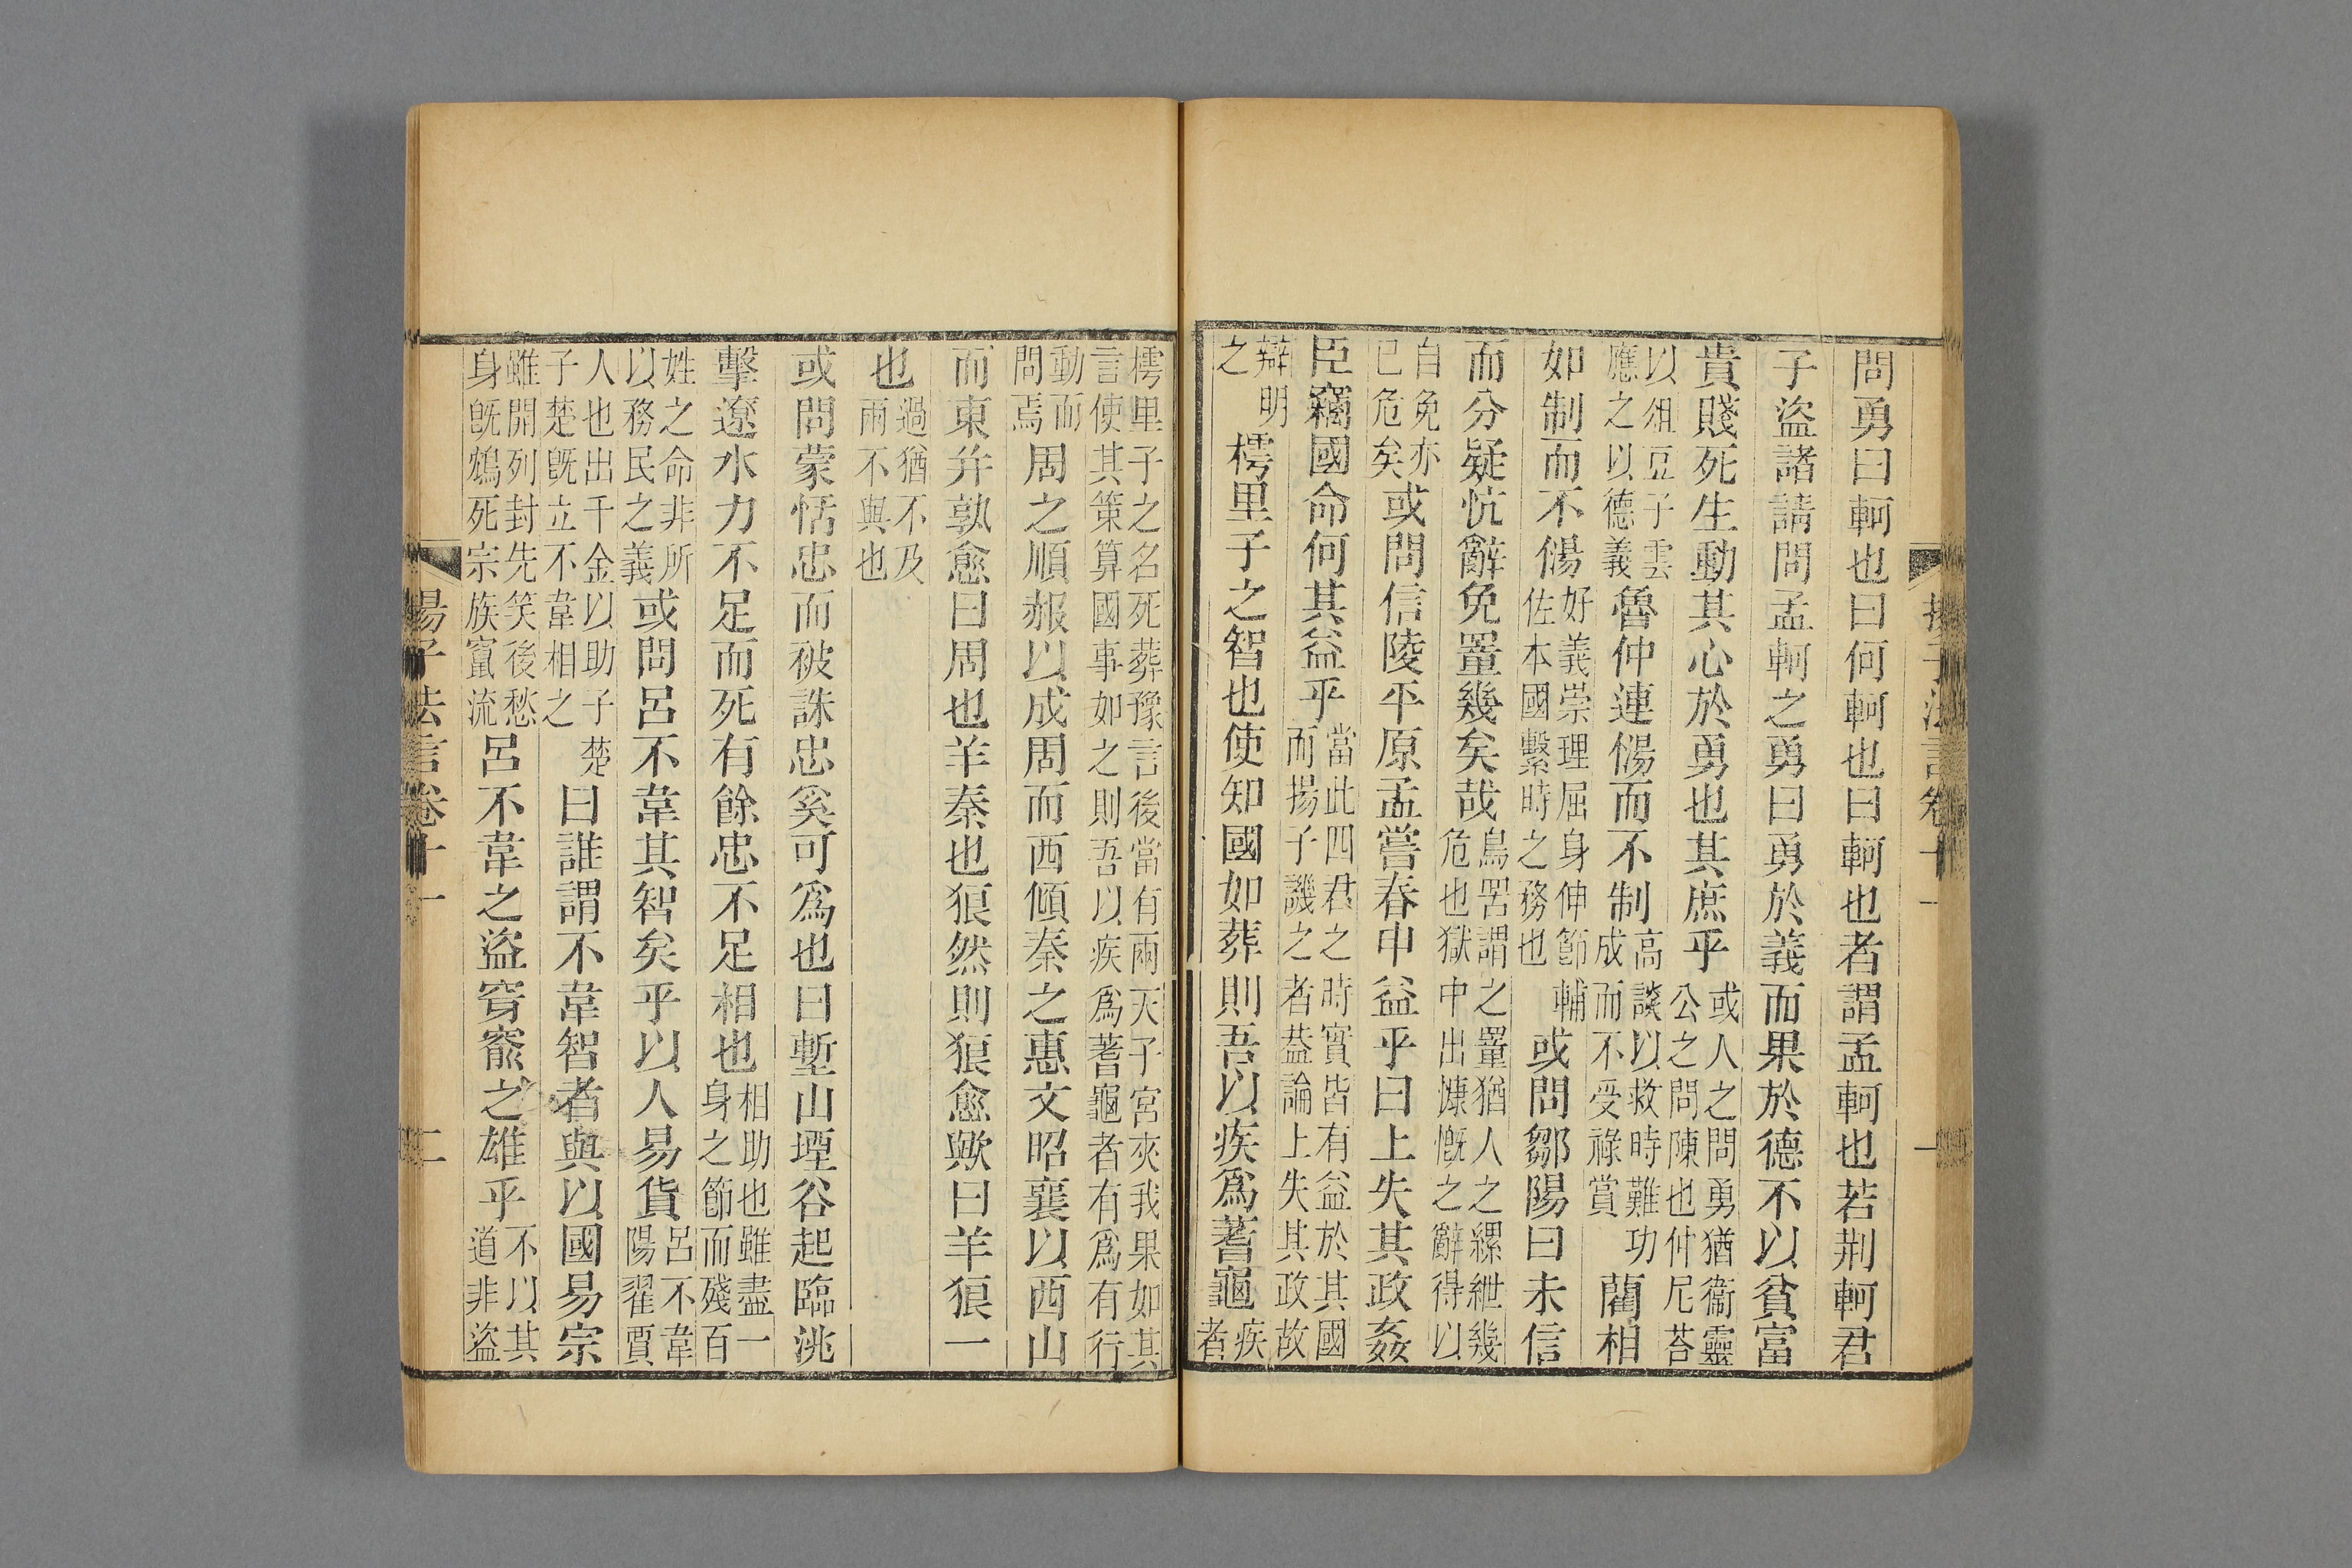 揚子法言卷十一 一
問勇曰軻也曰何軻也曰軻也者謂孟軻也若荆軻君
子盜諸請問孟軻之勇曰勇於義而果於德不以貧富
貴賤死生動其心於勇也其庶乎
或人之問勇猶衞靈
公之問陳也仲尼荅
以俎豆子雲
應之以德義
魯仲連偒而不制
高談以救時難功
成而不受祿賞
藺相
如制而不偒
好義崇理屈身伸節輔
佐本國繫時之務也
或問鄒陽曰未信
而分疑忼辭免罿幾矣哉
鳥罟謂之罿猶人之縲紲幾
危也獄中出慷慨之辭得以
自免亦
已危矣
或問信陵平原孟嘗春申益乎曰上失其政姦
臣竊國命何其益乎
當此四君之時實皆有益於其國
而揚子譏之者蓋論上失其政故
辯明
之
樗里子之智也使知國如葬則吾以疾爲蓍龜
疾
者
樗里子之名死葬豫言後當有兩天子宮夾我果如其
言使其策算國事如之則吾以疾爲蓍龜者有爲有行
動而
問焉
周之順赧以成周而西傾秦之惠文昭襄以西山
而東并孰愈曰周也羊秦也狼然則狼愈歟曰羊狼一
也
過猶不及
兩不與也
或問蒙恬忠而被誅忠奚可爲也曰塹山堙谷起臨洮
擊遼水力不足而死有餘忠不足相也
相助也雖盡一
身之節而殘百
姓之命非所
以務民之義
或問呂不韋其智矣乎以人易貨
呂不韋
陽翟賈
人也出千金以助子楚
子楚旣立不韋相之
曰誰謂不韋智者與以國易宗
雖開列封先笑後愁
身旣鴆死宗族竄流
呂不韋之盜穿窬之雄乎
不以其
道非盜
揚子法言卷十一 二